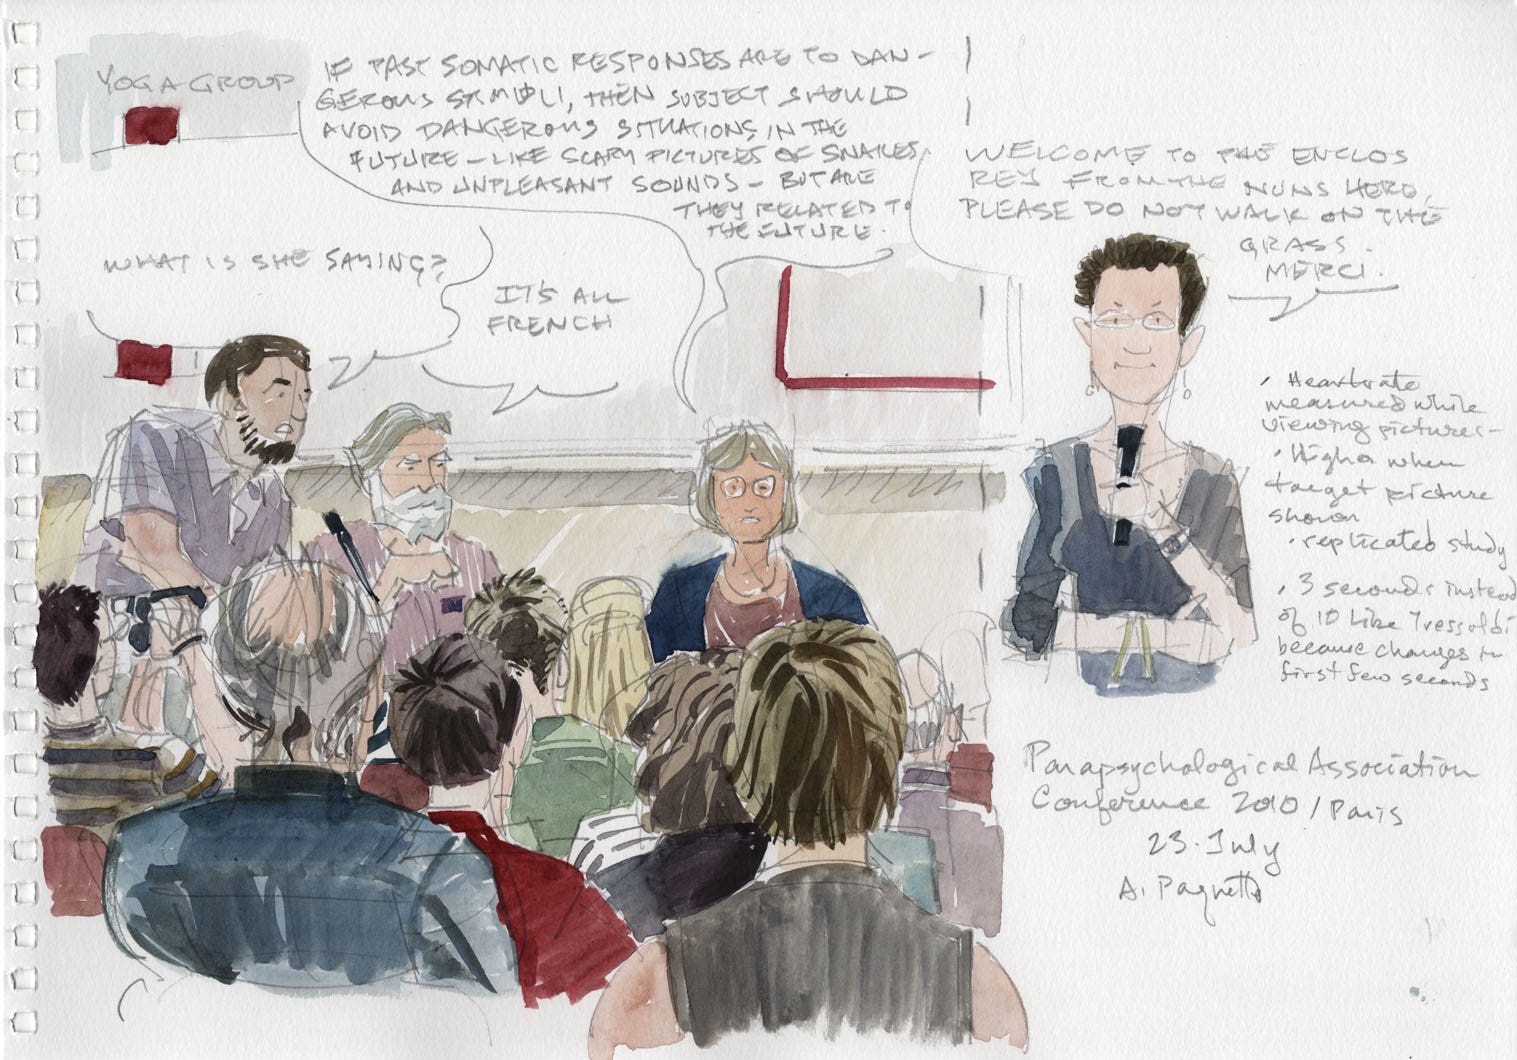 YOGA-GROUP
IF PAST SOMATIC RESPONSES ARE TO DAN-
GEROUS STIMULI, THEN SUBJECT SHOULD
AVOID DANGEROUS SITUATIONS, IN THE
FUTURE - LIKE SCARY PICTURES OF SNAKES,
AND UNPLEASANT SOUNDS - BUT ARE
THEY RELATED TO
THE FUTURE.
WHAT IS SHE SAYING?
IT'S ALL
FRENCH
WELCOME TO THE ENCLOS
REY FROM THE NUNS HERE,
PLEASE DO NOT WALK ON THE
GRASS.
MERCI.
• Heartrate
measured while
viewing pictures -
• Higher when
target picture
shown
• replicated study
• 3 seconds instead
of 10 like Tressoldi
because changes in
first few seconds
Parapsychological Association
Conference 2010 / Paris
23. July
A. Paquette